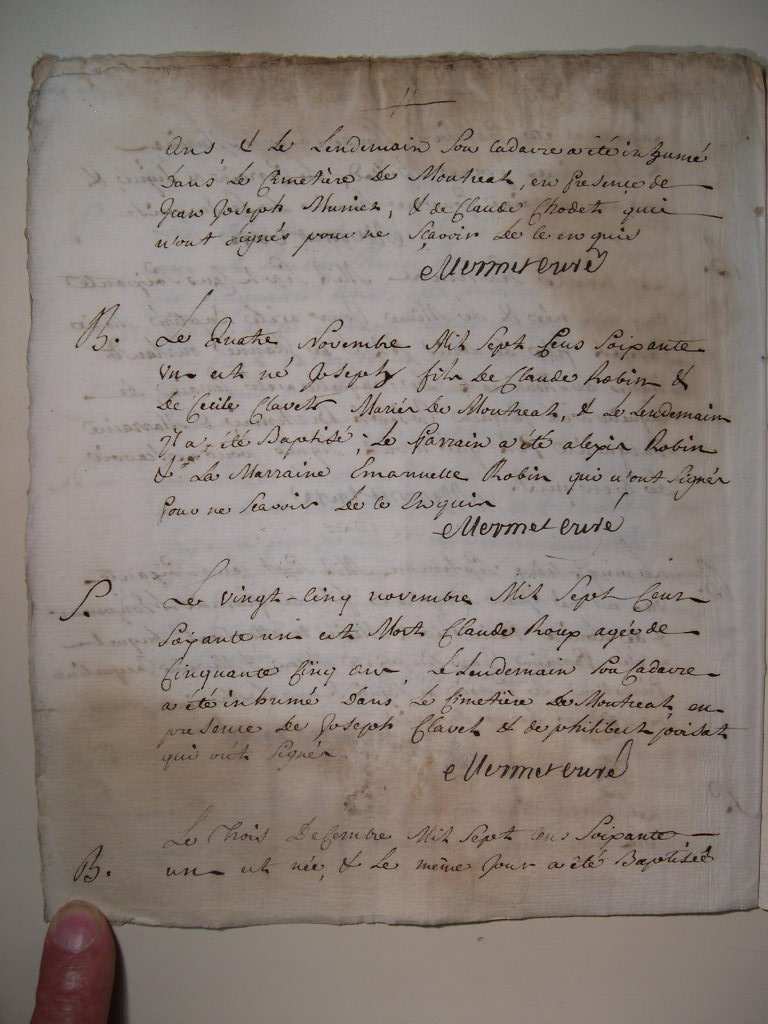 11
ans, & le lendemain son cadavre a été inhumé
dans le cimetière de Montreal, en presence de
Jean Joseph Munier, & de Claude Chodet qui
n'ont signés pour ne sçavoir de ce enquis
Mermet curé
B. Le quatre novembre mil sept cens soixante
un est né Joseph fils de Claude Robin &
de Cecile Clavet mariés de Montreal, & le lendemain
il a été baptisé; le parrain a été alexis Robin
& la marraine Emanuelle Robin qui n'ont signés
pour ne scavoir de ce enquis
Mermet curé
S. Le vingt-cinq novembre mil sept cens
soixante un est mort Claude Roux agée de
cinquante cinq ans, le lendemain son cadavre
a été inhumé dans le cimetière de Montreal en
presence de Joseph Clavet & de philibert joisat
qui n'ont signés
Mermet curé
Le trois decembre mil sept cens soixante
B. un est née, & le même jour a été baptisée